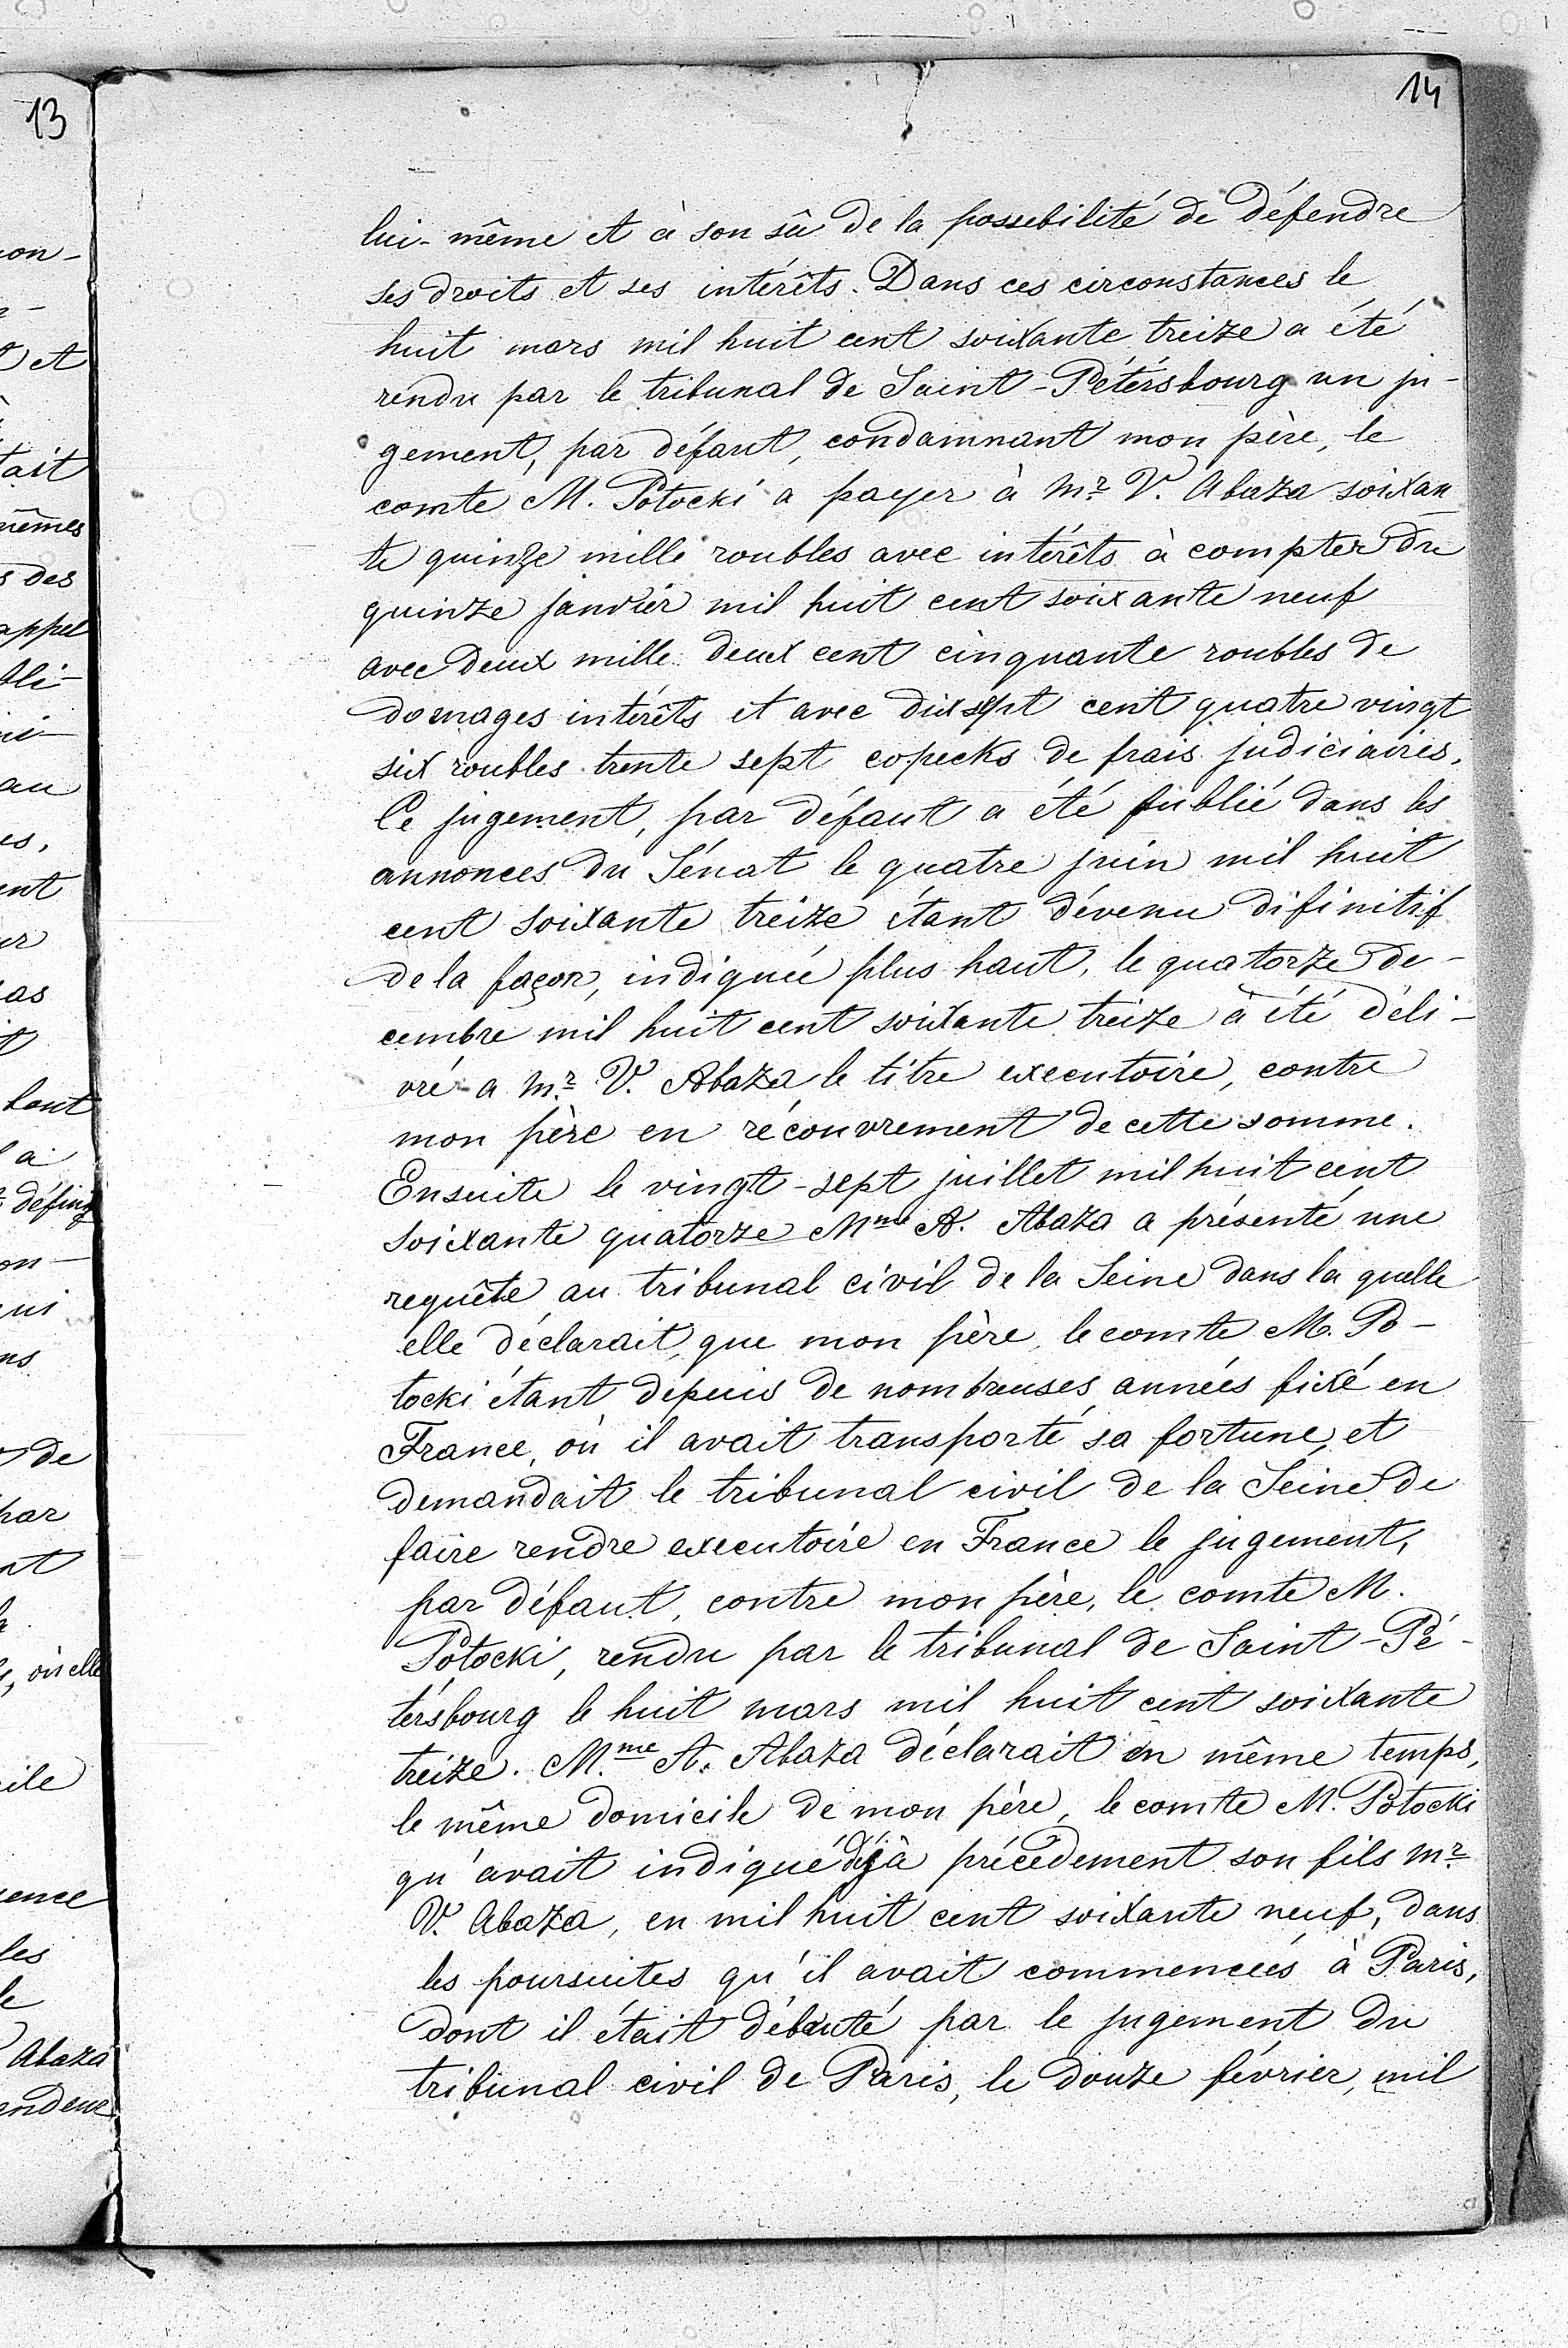 13
14
lui-même et à son sû de la possebilité de défendre
ses droits et ses intérêts. Dans ces circonstances le
huit mars mil huit cent soixante treize a été
rendu par le tribunal de Saint-Pétérsbourg un ju-
gement, par défaut, condamnant mon père, le
comte M. Potocki a payer à Mr V. Abaza soixan
te quinze mille roubles avec intérêts à compter du
quinze janvier mil huit cent soixante neuf
avec deux mille deux cent cinquante roubles de
domages intérêts et avec dix sept cent quatre vingt
six roubles trente sept copecks de frais judiciaires.
Ce jugement, par défaut a été publié dans les
annonces du Sénat le quatre juin mil huit
cent soixante treize étant dévenu difinitif
de la façon, indiquée plus haut, le quatorze de-
cembre mil huit cent soixante treize à été déli-
vré a Mr. V. Abaza le titre executoire, contre
mon père en récouvrement de cette somme.
Ensuite le vingt-sept juillet mil huit cent
soixante quatorze Mme A. Abaza a présenté une
requête au tribunal civil de la Seine dans la quelle
elle déclarait, que mon père, le comte M. Po-
tocki étant dépuis de nombreuses années fixé en
France, où il avait transporté sa fortune, et
demandait le tribunal civil de la Seine de
faire rendre executoire en France le jugement,
par défaut, contre mon père, le comte M.
Potocki, rendu par le tribunal de Saint-Pé-
térsbourg le huit mars mil huit cent soixante
treize. M.me A. Abaza déclarait en même temps,
le même domicile de mon père, le comte M. Potocki
qu'avait indiqué déjà précédement son fils Mr
V. Abaza, en mil huit cent soixante neuf, dans
les poursuites qu'il avait commencées à Paris,
dont il était débouté par le jugement du
tribunal civil de Paris, le douze février, mil